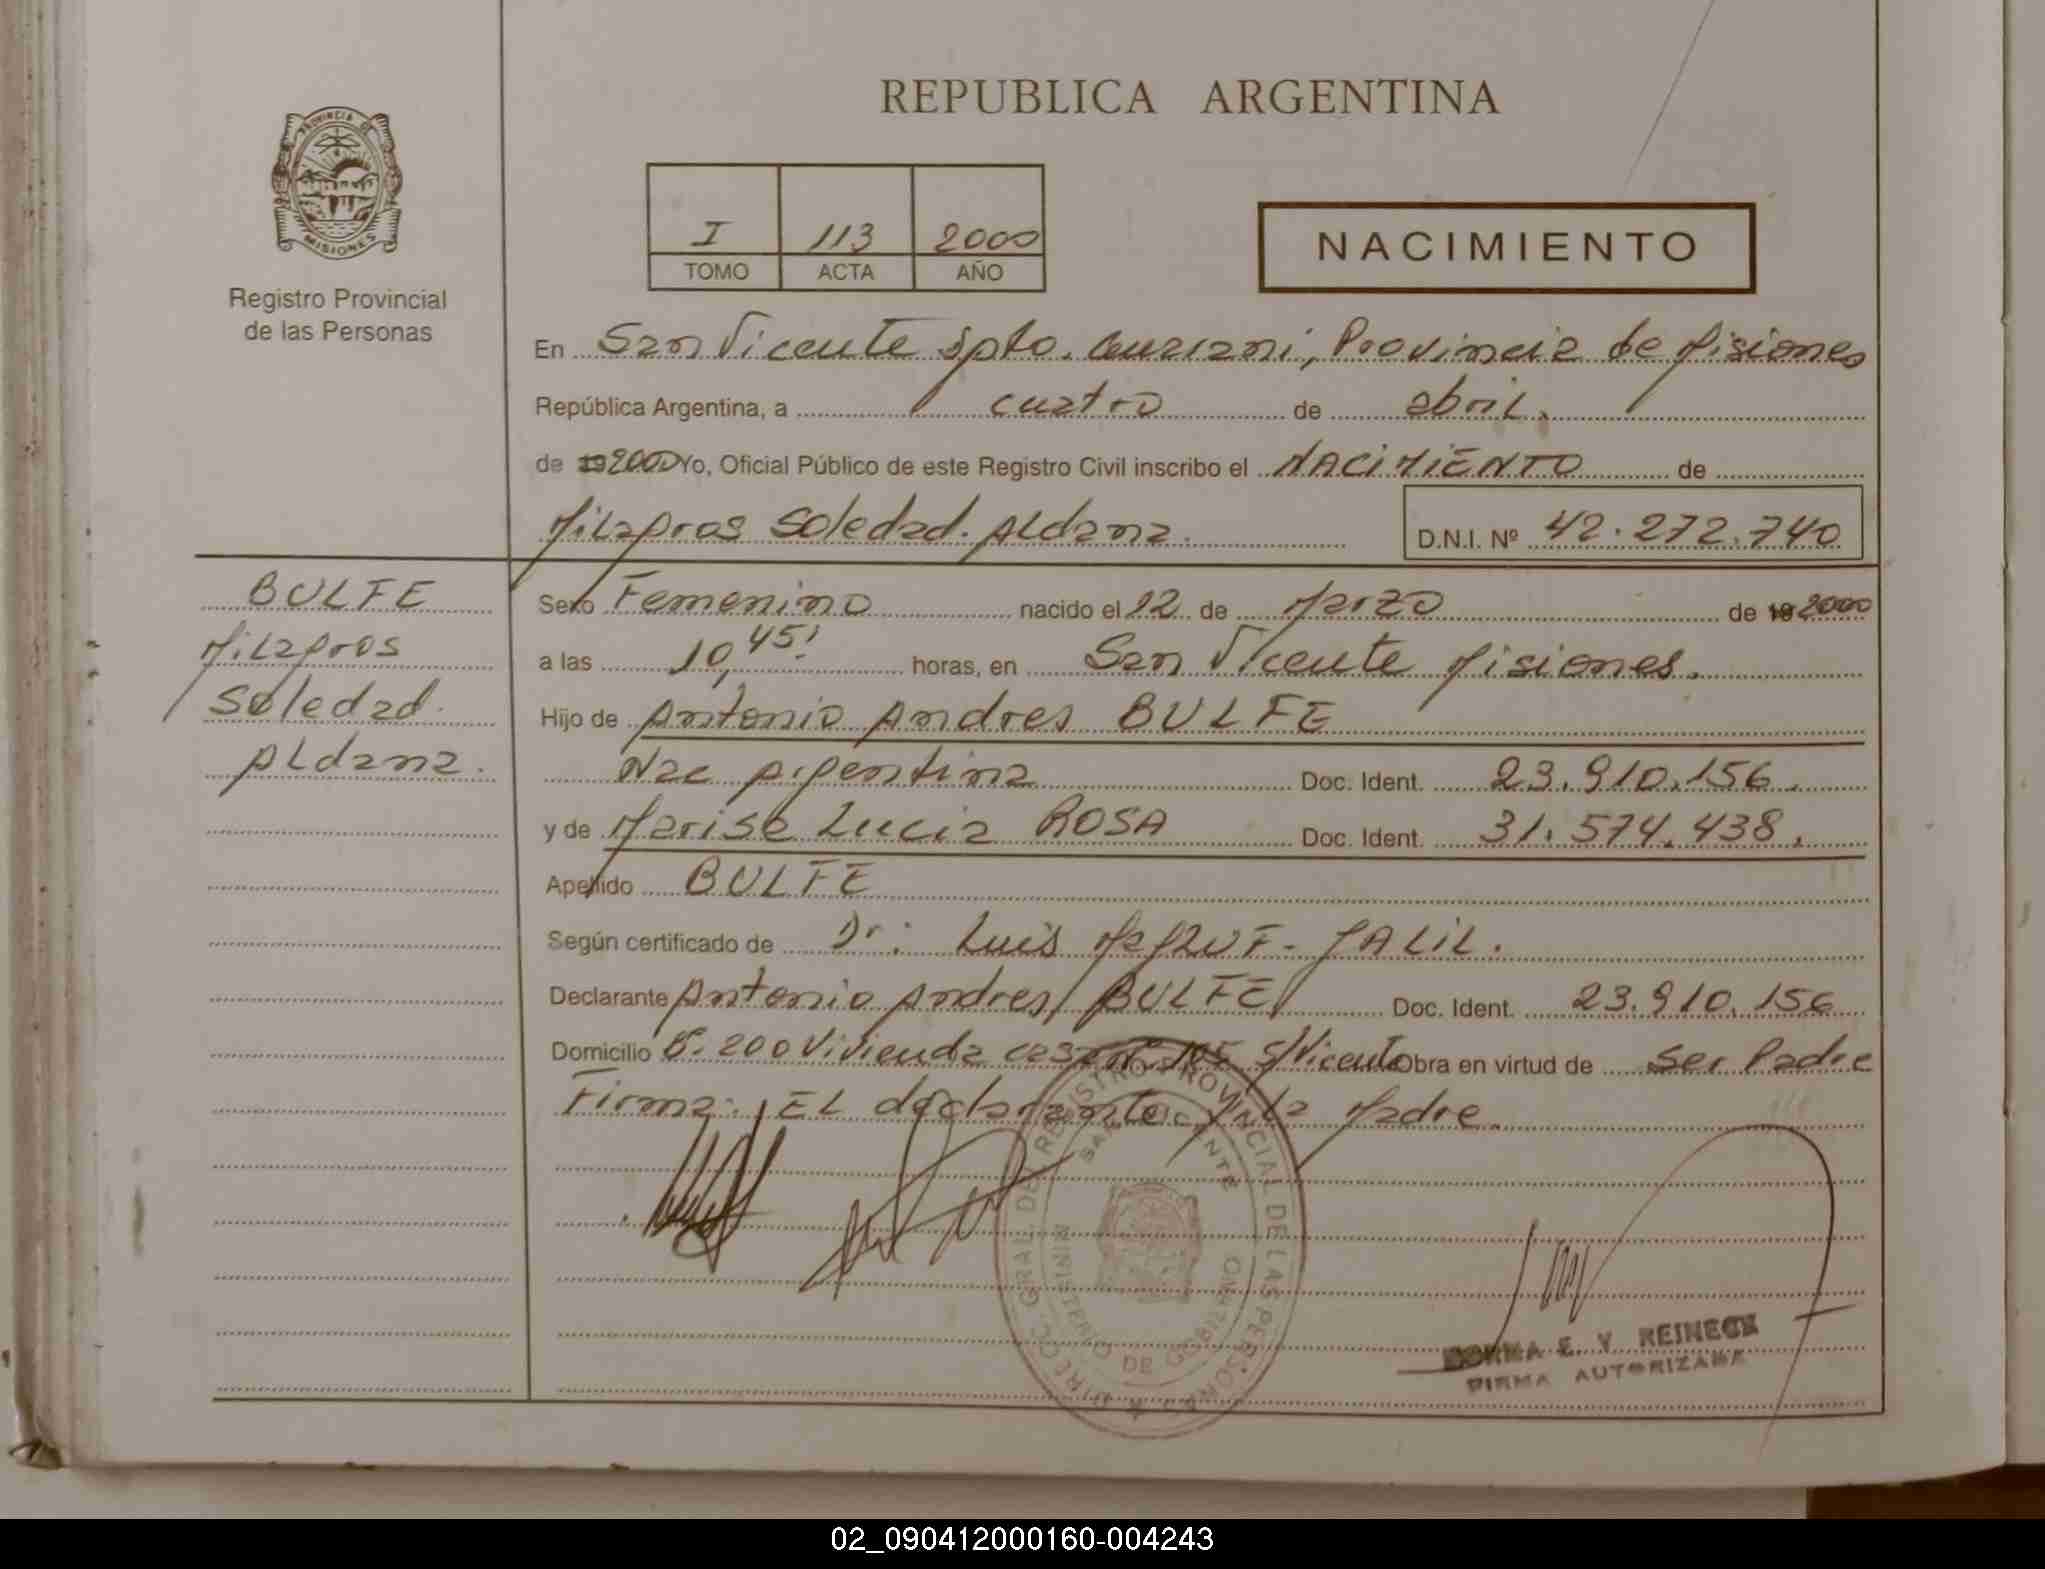 REPUBLICA ARGENTINA
PROVINCIA DE
MISIONES
Registro Provincial
de las Personas
I 113 2000
TOMO ACTA AÑO
NACIMIENTO
En San Vicente Dpto. Guarani, Provincia de Misiones
República Argentina, a cuatro de abril.
de 19 2000 Yo, Oficial Público de este Registro Civil inscribo el NACIMIENTO de
Milagros Soledad Aldana. D.N.I. Nº 42.272.740
BULFE
Milagros
Soledad
Aldana.
Sexo Femenino nacido el 12 de Marzo de 19 2000
a las 10,45! horas, en San Vicente Misiones.
Hijo de Antonio Andres BULFE
Nac Argentina Doc. Ident. 23.910.156.
y de Marise Lucia ROSA Doc. Ident. 31.574.438.
Apellido BULFE
Según certificado de Dr: Luis JALIL.
Declarante Antonio Andres BULFE Doc. Ident. 23.910.156
Domicilio B. 200 Vivienda casa nº 105 S/Vicente Obra en virtud de Ser Padre
Firma: EL declarante y la Madre.
DIRECC. GRAL. DEL REGISTRO PROVINCIAL DE LAS PERSONAS
SAN VICENTE
MINISTERIO DE GOBIERNO
E. V. REINECK
FIRMA AUTORIZADA
02_090412000160-004243